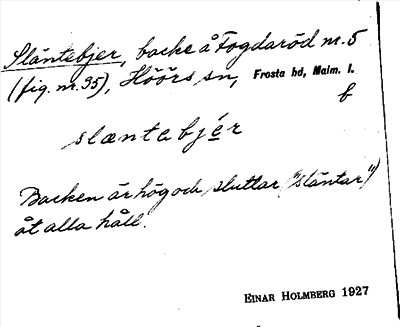 Släntebjer, backe å Fogdaröd nr. 5
(fig. nr. 35), Höörs sn, Frosta hd, Malm. l.
f
slæntebjér
Backen är hög och sluttar ("släntar")
åt alla håll.
EINAR HOLMBERG 1927